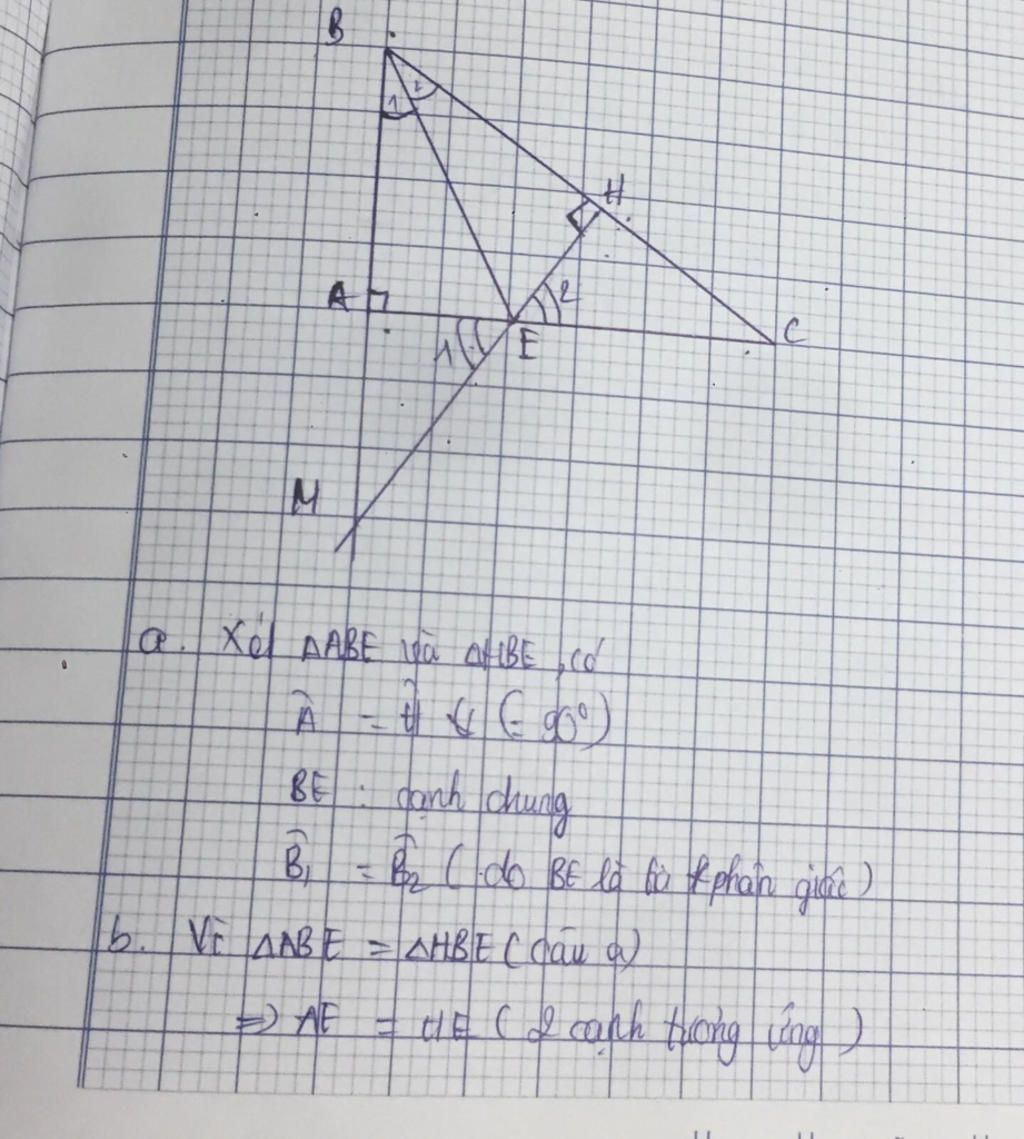 B
1 2
H
A
2
1
E
C
M
a. Xét ΔABE và ΔHBE, có
Â = Ĥ (= 90°)
BE : cạnh chung
B̂₁ = B̂₂ ( do BE là tia phân giác)
b. Vì ΔABE = ΔHBE (câu a)
=> AE = HE ( 2 cạnh tương ứng )